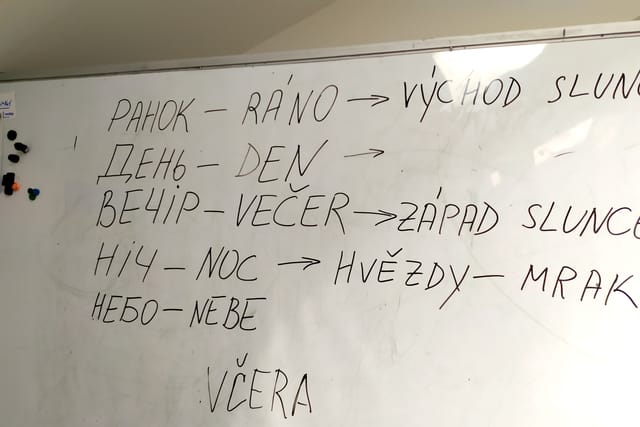 РАНОК – RÁNO → VÝCHOD SLUN
ДЕНЬ – DEN → –
ВЕЧІР – VEČER → ZÁPAD SLUNCE
НІЧ – NOC → HVĚZDY – MRAK
НЕБО – NEBE
VČERA